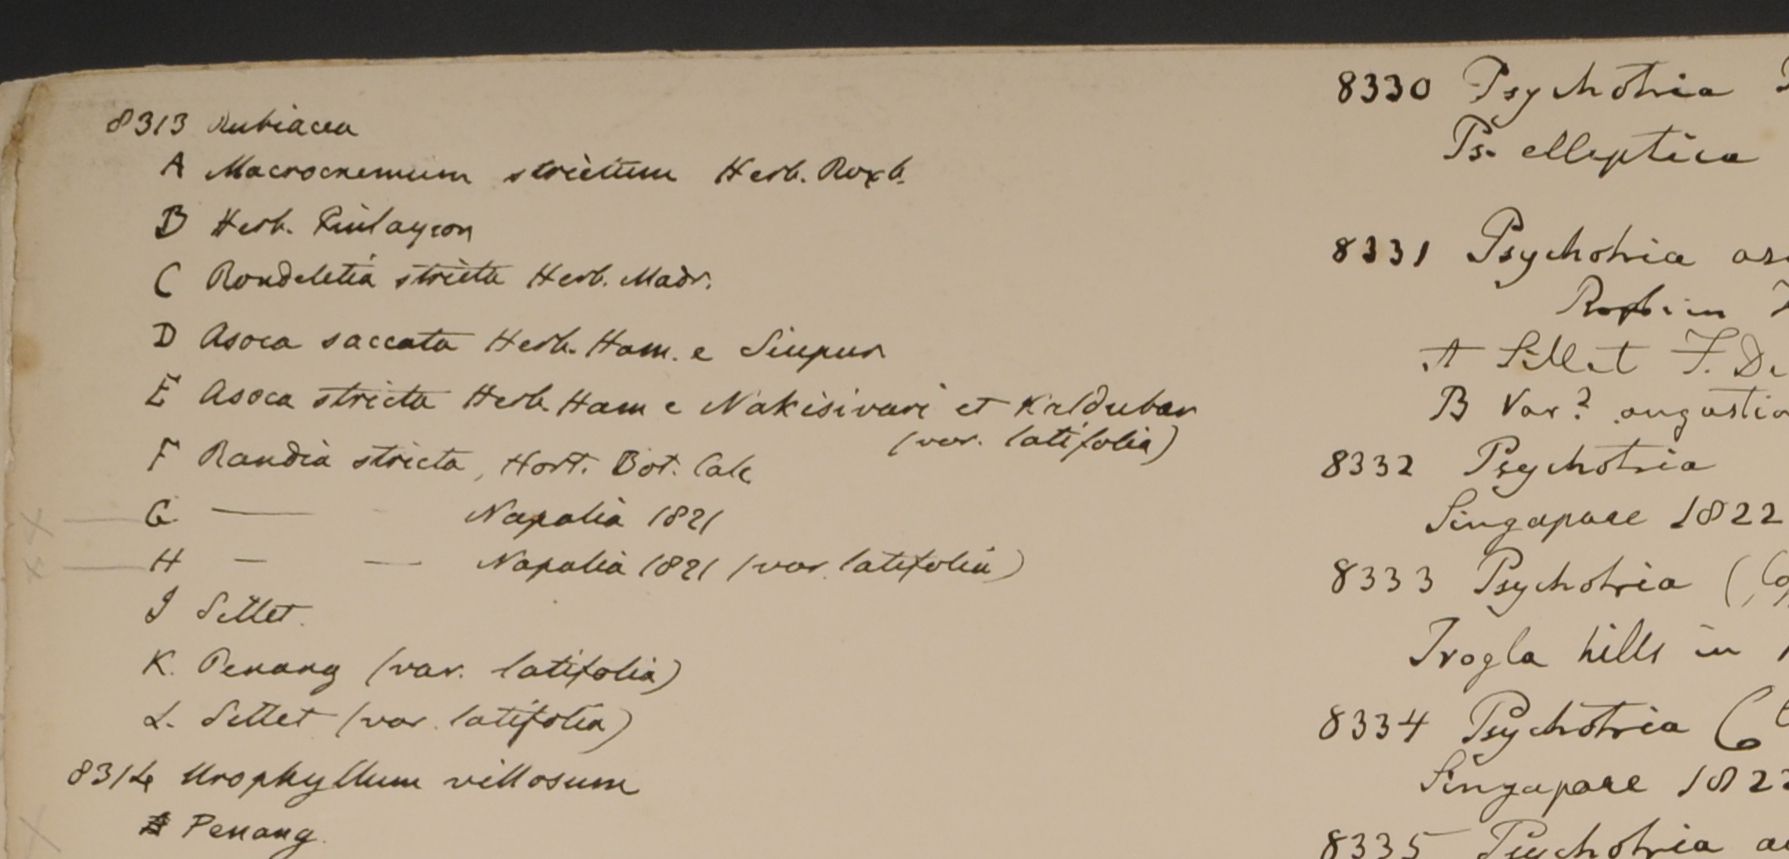 8313 Rubiacea
A Macrocnemum strictum Herb. Roxb.
B Herb. Finlayson
C Rondeletia stricta Herb. Madr.
D Asoca saccata Herb. Ham. e Siupur
E Asoca stricta Herb. Ham e Nakisivari et Kaldubar
(var. latifolia)
F Randia stricta, Hort. Bot. Calc
G — - Napalia 1821
H — — Napalia 1821 (var. latifolia)
I Sillet.
K. Penang (var. latifolia)
L. Sillet (var. latifolia)
8314 Urophyllum villosum
A Penang.
8330 Psychotria
Ps. elleptica
8331 Psychotria
in
A Sillet F. De
B Var? angustio
8332 Psychotria
Singapore 1822
8333 Psychotria (
Trogla hills in
8334 Psychotria (
Singapore 1822
8335 Psychotria